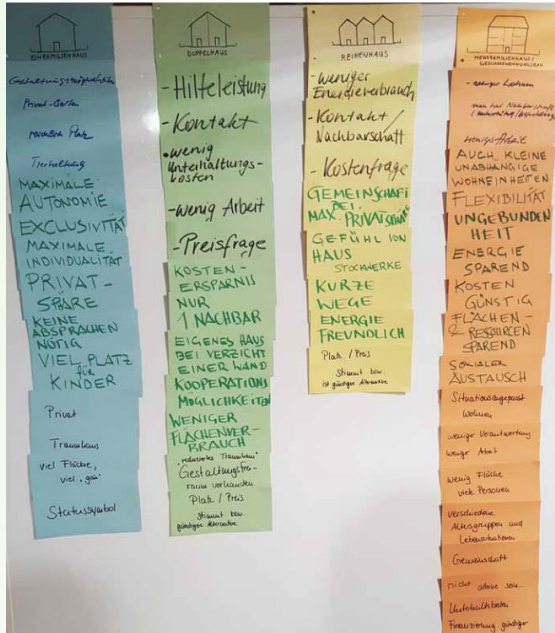 EINFAMILIENHAUS
Gestaltungsmöglichkeiten
Privat-Garten
Platz
Tierhaltung
MAXIMALE
AUTONOMIE
EXCLUSIVITÄT
MAXIMALE
INDIVIDUALITÄT
PRIVAT-
SPHÄRE
KEINE
ABSPRACHEN
NÖTIG
VIEL PLATZ
FÜR
KINDER
Privat
Traumhaus
viel Fläche,
viel "grün"
Statussymbol
DOPPELHAUS
- Hilfeleistung
- Kontakt
• wenig
Unterhaltungs-
kosten
- wenig Arbeit
- Preisfrage
KOSTEN-
ERSPARNIS
NUR
1 NACHBAR
EIGENES HAUS
BEI VERZICHT
EINER WAND
KOOPERATIONS
MÖGLICHKEITEN
WENIGER
FLÄCHENVER-
BRAUCH
"reduziertes Traumhaus"
Gestaltungsfrei-
raum vorhanden
Platz / Preis
stimmt bzw.
günstiger Alternative
REIHENHAUS
- weniger
Energieverbrauch
- Kontakt /
Nachbarschaft
- Kostenfrage
GEMEINSCHAFT
BEI
MAX. PRIVATSPHÄRE
GEFÜHL VON
HAUS
STOCKWERKE
KURZE
WEGE
ENERGIE
FREUNDLICH
Platz / Preis
stimmt bzw.
ist günstiger Alternative
MEHRFAMILIENHAUS
GESCHOSSWOHNUNGSBAU
man hat Nachbarschaft
wenig Arbeit
AUCH KLEINE
UNABHÄNGIGE
WOHNEINHEITEN
FLEXIBILITÄT
UNGEBUNDEN
HEIT
ENERGIE
SPAREND
KOSTEN
GÜNSTIG
FLÄCHEN-
& RESSOURCEN
SPAREND
SOZIALER
AUSTAUSCH
Situationsangepasst
Wohnen
weniger Verantwortung
weniger Arbeit
wenig Fläche
viele Personen
verschiedene
Altersgruppen und
Lebenssituationen
Gemeinschaft
nicht alleine sein..
Unterhaltskosten
Finanzierung günstiger